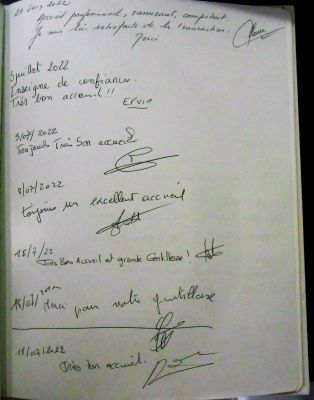 29 Juin 2022
Accueil professionnel, rassurant, compétent
Je suis très satisfaite de la transaction.
Merci
5 juillet 2022
Enseigne de confiance.
Très bon accueil !!
Ervin
5/07/2022
Toujours Très bon accueil
8/07/2022
toujours un excellent accueil
15/7/22
Très Bon Accueil et grande Gentillesse !
Merci pour votre gentillesse
18/07/2022
Très bon accueil.